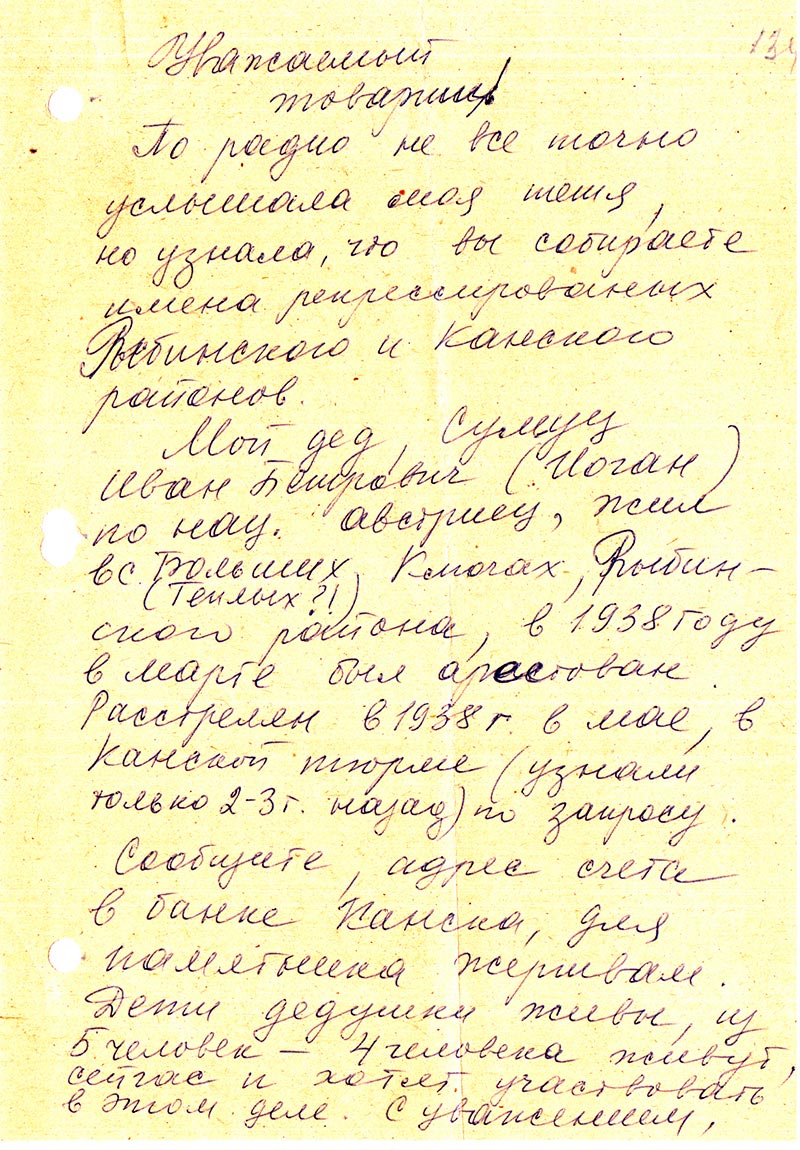 134
Уважаемый
товарищ!
По радио не все точно
услышала моя тетя,
но узнала, что вы собираете
имена репрессированых
Рыбинского и Канского
районов.
Мой дед, Сумуц
Иван Петрович (Иоган)
по нац. австриец, жил
в с Больших Ключах, Рыбин-
(Теплых?!)
ского района, в 1938 году
в марте был арестован.
Расстрелян в 1938 г. в мае, в
Канской тюрме (узнали
только 2-3 г. назад) по запросу.
Сообщите, адрес счета
в банке Канска, для
памятника жертвам.
Дети дедушки живы, из
5 человек – 4 человека живут,
сейчас и хотят участвовать
в этом деле. С уважением,